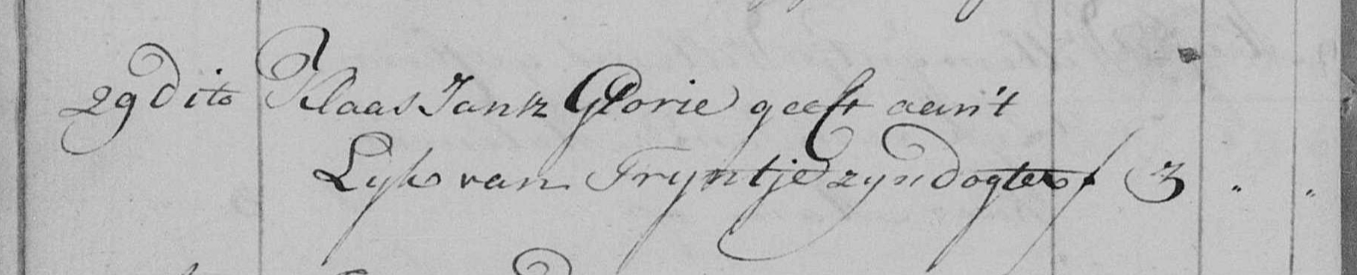 29 dito Klaas Jansz Glorie geeft aen't
Lyk van Tryntje zyn dogter f 3 " "